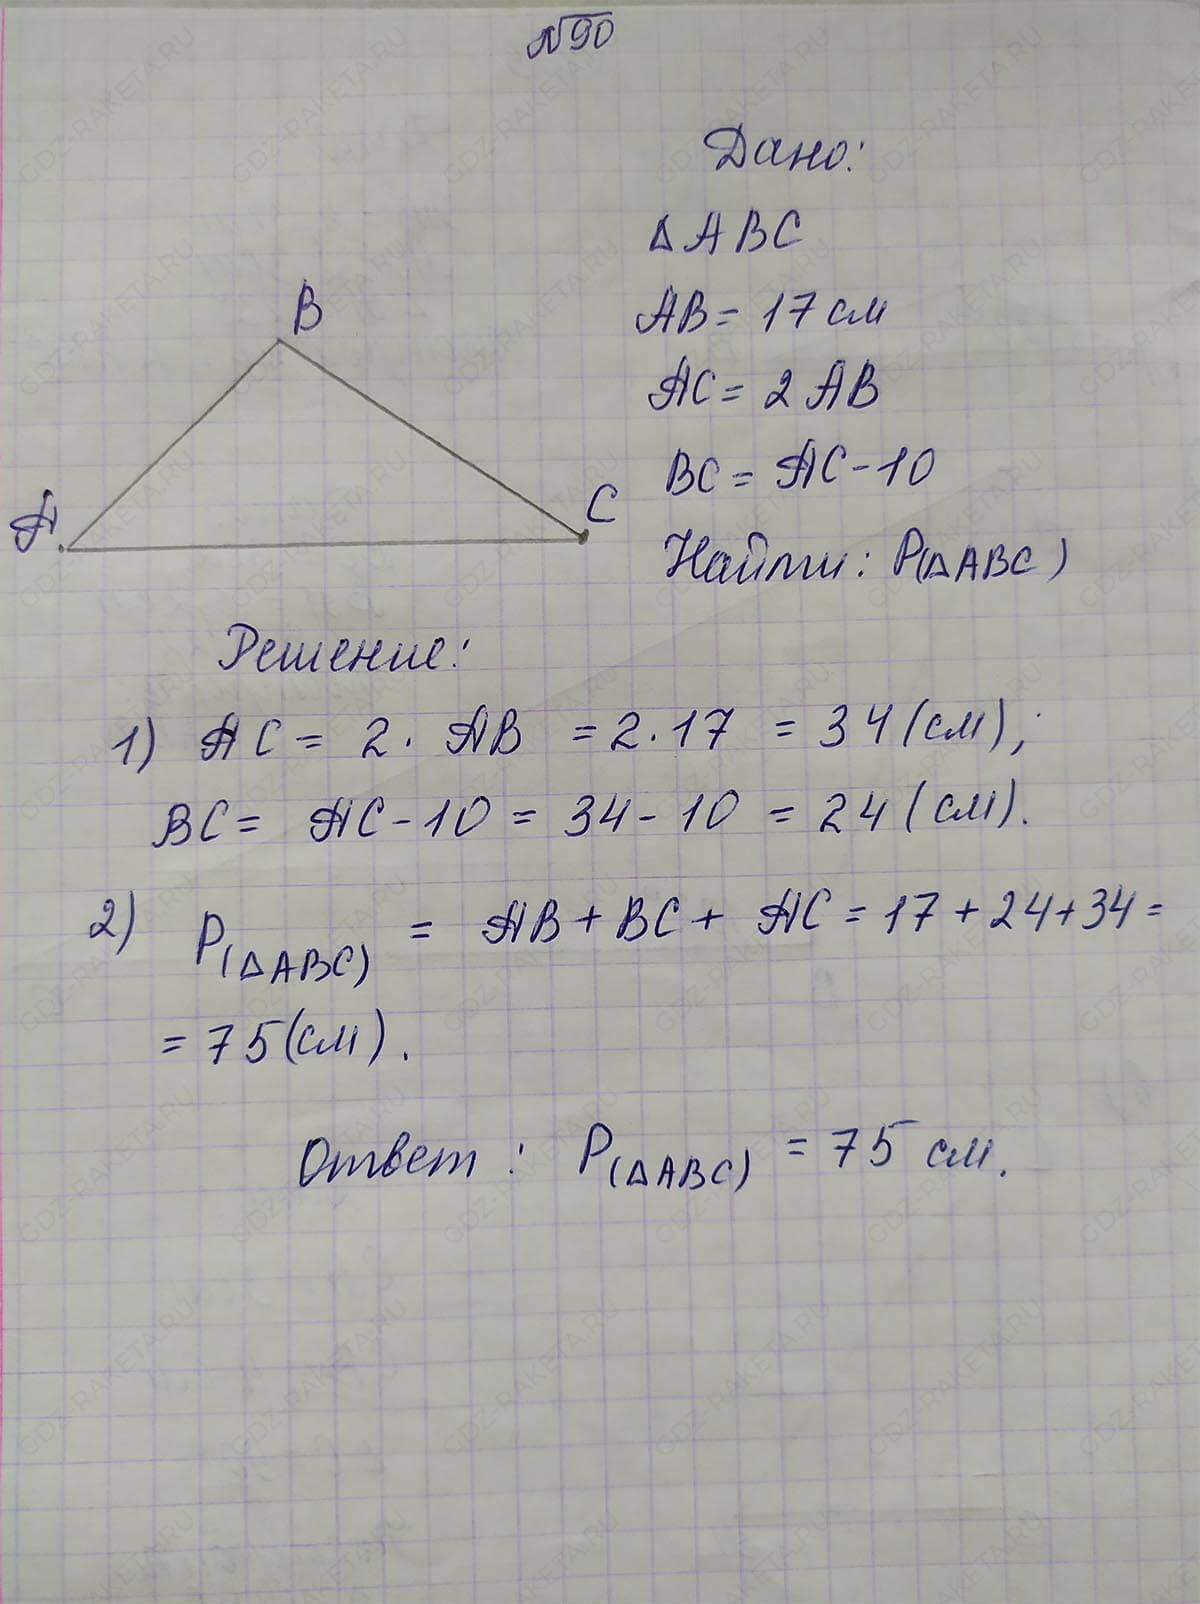 №90
Дано:
△ABC
AB = 17 см
AC = 2 AB
BC = AC - 10
Найти: P(△ABC)
B
A
C
Решение:
1) AC = 2 · AB = 2 · 17 = 34 (см);
BC = AC - 10 = 34 - 10 = 24 (см).
2) P(△ABC) = AB + BC + AC = 17 + 24 + 34 =
= 75 (см).
Ответ: P(△ABC) = 75 см.
GDZ-RAKETA.RU